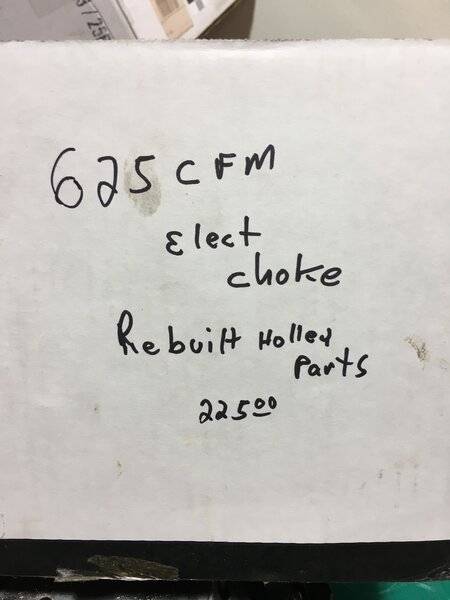 625 CFM
Elect
choke
Rebuilt Holley
Parts
225⁰⁰